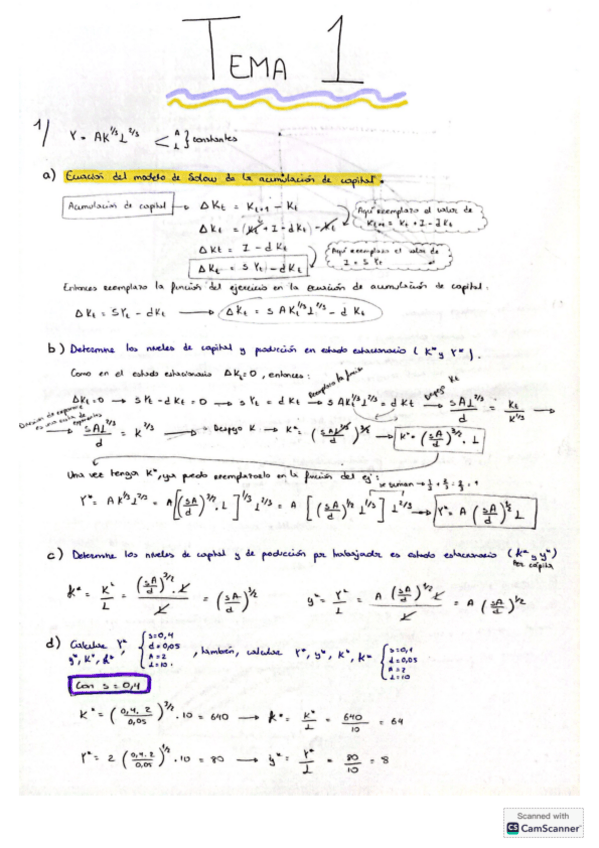 TEMA 1
1/ Y = AK^1/3 L^2/3 < A L } constantes
a) Ecuación del modelo de Solow de la acumulación de capital.
Acumulación de capital → ΔKt = Kt+1 - Kt
Aquí reemplazo el valor de
Kt+1 = Kt + I - dKt
ΔKt = (Kt + I - dKt) - Kt
ΔKt = I - dKt
Aquí reemplazo el valor de
I = s Yt
ΔKt = s Yt - dKt
Entonces reemplazo la función del ejercicio en la ecuación de acumulación de capital.
ΔKt = sYt - dKt → ΔKt = s AKt^1/3 L^2/3 - d Kt
b) Determine los niveles de capital y producción en estado estacionario (K* y Y*).
Como en el estado estacionario ΔKt=0, entonces:
Reemplazo la función
Despejo Kt
ΔKt=0 → sYt - dKt = 0 → sYt = dKt → sAKt^1/3 L^2/3 = dKt → sAL^2/3 / d = Kt / K^1/3 →
es una resta de
→ sAL^2/3 / d = K^2/3 → Despejo K → K* = (sAL^2/3 / d)^3/2 → K* = (sA/d)^3/2 . L
Una vez tengo K*, ya puedo reemplazarlo en la función del ej:
se suman → 1/3 + 2/3 = 1
Y* = AK^1/3 L^2/3 = A[(sA/d)^3/2 . L]^1/3 L^2/3 = A [(sA/d)^1/2 L^1/3] L^2/3 → Y* = A (sA/d)^1/2 L
c) Determine los niveles de capital y de producción por trabajador es estado estacionario (k* y y*)
per cápita
k* = K*/L = (sA/d)^3/2 . L / L = (sA/d)^3/2 y* = Y*/L = A (sA/d)^1/2 . L / L = A (sA/d)^1/2
d) Calcular Y*, y*, K*, k* { s=0,4 d=0,05 A=2 L=10. , también, calcular Y*, y*, K*, k* { s=0,1 d=0,05 A=2 L=10
Con s = 0,4
K* = (0,4.2 / 0,05)^3/2 . 10 = 640 → k* = K*/L = 640/10 = 64
Y* = 2 (0,4.2 / 0,05)^1/2 . 10 = 80 → y* = Y*/L = 80/10 = 8
Scanned with
CS CamScanner